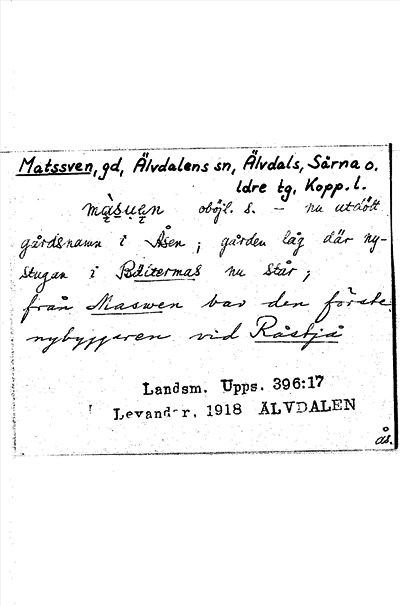 Matssven, gd, Älvdalens sn, Älvdals, Särna o.
Idre tg, Kopp. l.
màsu̯ęn oböjl. s. – nu utdött
gårdsnamn i Åsen; gården låg där ny-
stugan i Bäitermas nu står;
från Maswen var den förste
nybyggaren vid Råstjä
Landsm. Upps. 396:17
Levander, 1918 ÄLVDALEN
ås.